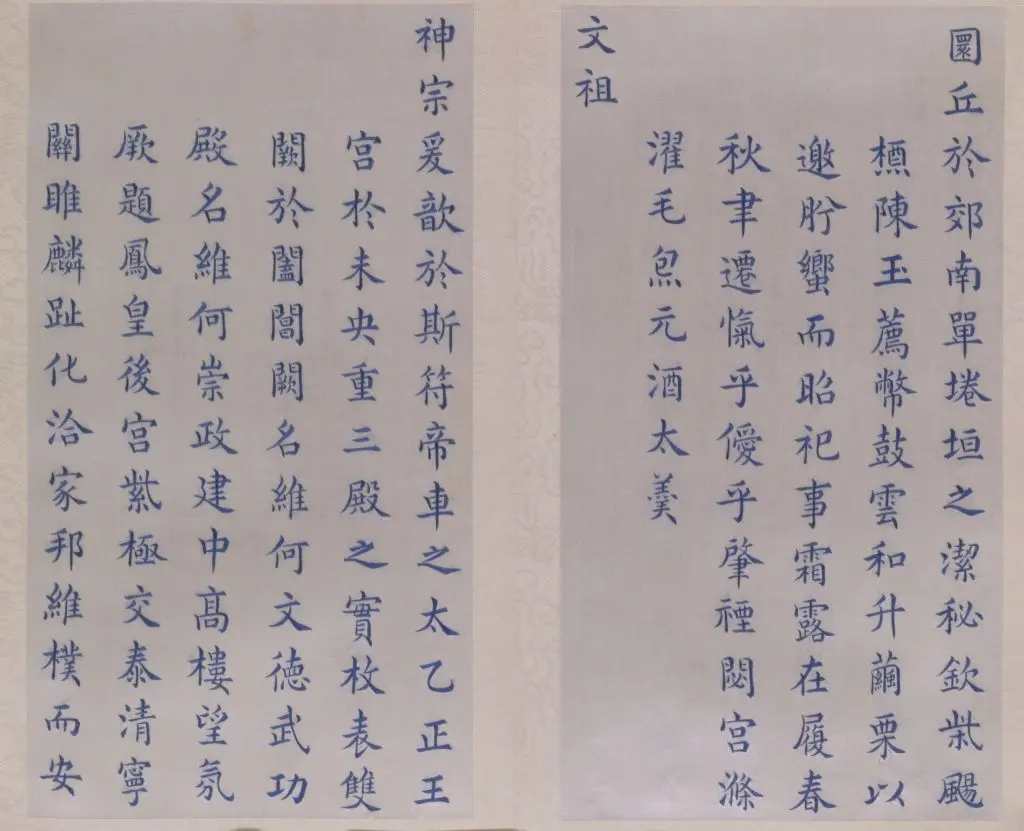 圜丘於郊南單埢垣之潔秘欽柴颺
槱陳玉薦幣鼓雲和升繭栗以
邀肹蠁而昭祀事霜露在履春
秋聿遷愾乎僾乎肇禋閟宮滌
濯毛炰元酒太羹
文祖
神宗爰歆於斯符帝車之太乙正王
宮於未央重三殿之實枚表雙
闕於闔閶闕名維何文德武功
殿名維何崇政建中高樓望氛
厥題鳳皇後宮紫極交泰清寧
關雎麟趾化洽家邦維樸而安